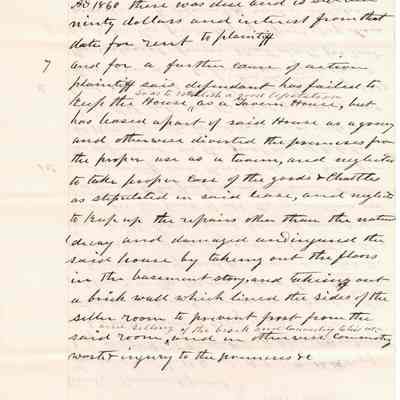 AD 1860 there was due and is
ninty dollars and interest from that
date for rent to plaintiff
7 and for a further cause of action
plaintiff said defendant has failed to
So as to establish a good reputation
keep the House, as a Tavern House, but
has leased a part of said House as a grocery
and otherwise diverted the premises from
the proper use as a tavern, and neglected
to take proper care of the goods & Chattles
as stipulated in said lease, and neglect
to keep up the repairs other than the natural
decay and damaged and injured the
said house by taking out the floors
in the basement story, and taking out
a brick wall which lined the sides of the
seller room to prevent frost from the
and selling of the brick and
said room, and in otherwise committing
waste & injury to the premises &c